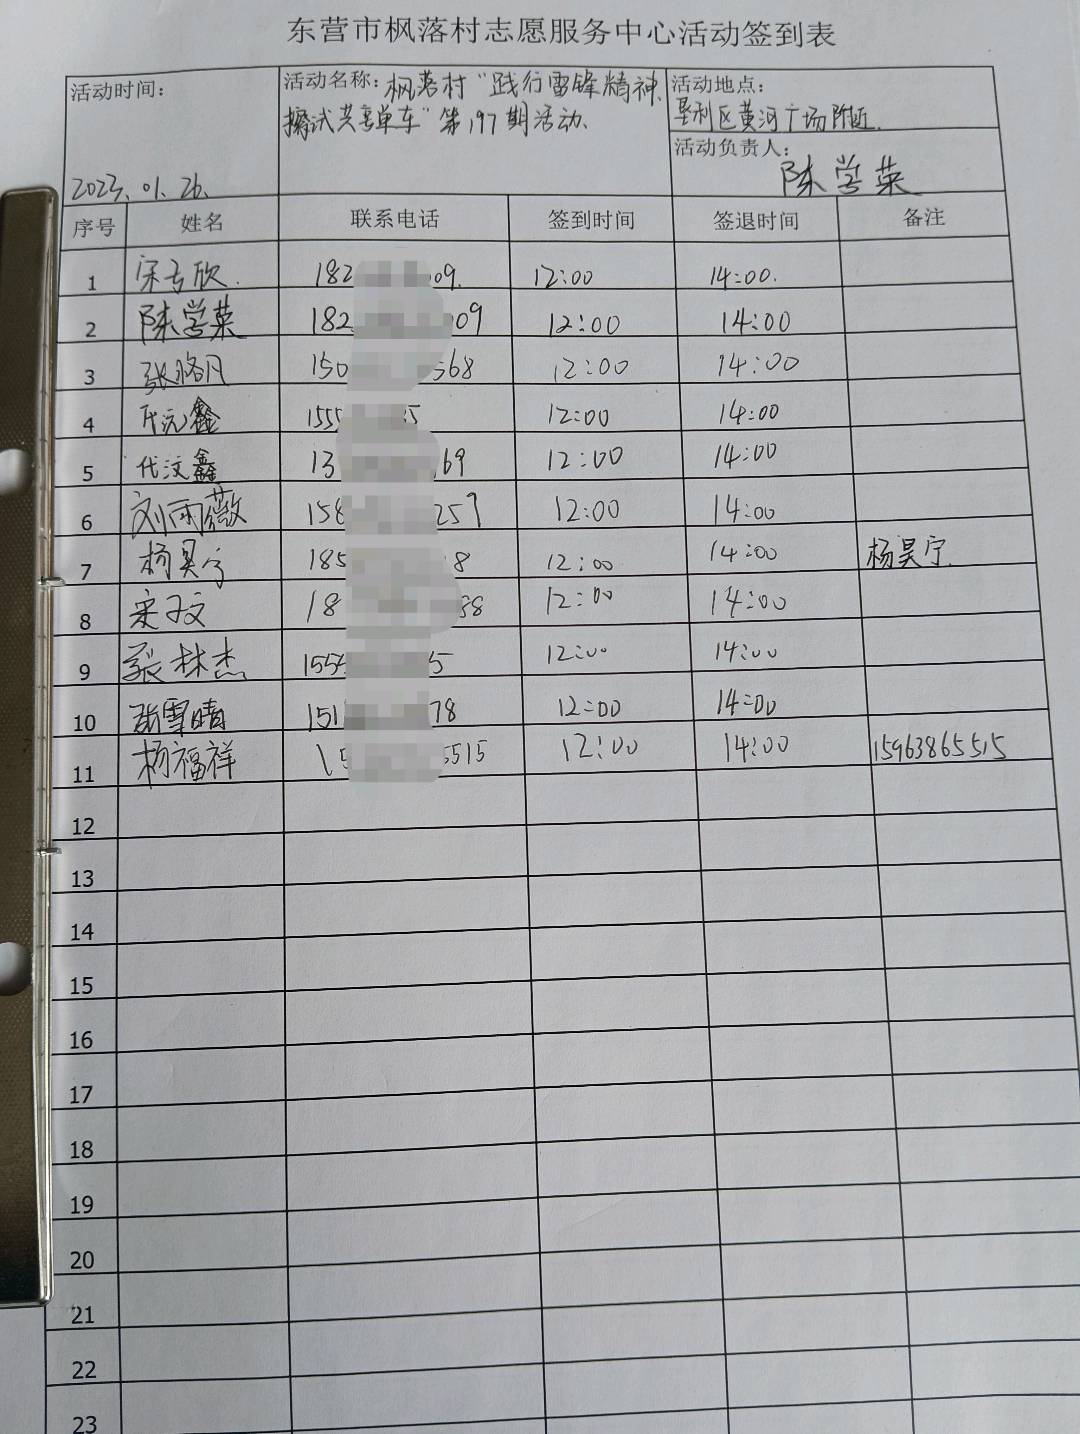 东营市枫落村志愿服务中心活动签到表
活动时间：
2023.01.26.
活动名称：枫落村“践行雷锋精神、
擦拭共享单车”第197期活动.
活动地点：
垦利区黄河广场附近.
活动负责人：
陈学荣
序号 姓名 联系电话 签到时间 签退时间 备注
1 182 09. 12:00 14:00.
2 陈学荣 182 09 12:00 14:00
3 150 568 12:00 14:00
4 代元鑫 155 5 12:00 14:00
5 代汶鑫 13 69 12:00 14:00
6 刘雨薇 158 257 12:00 14:00
7 杨昊宁 185 8 12:00 14:00 杨昊宁.
8 宋子文 18 58 12:00 14:00
9 张林杰 155 5 12:00 14:00
10 张雪晴 151 78 12:00 14:00
11 杨福祥 15 5515 12:00 14:00 15963865515
12
13
14
15
16
17
18
19
20
21
22
23